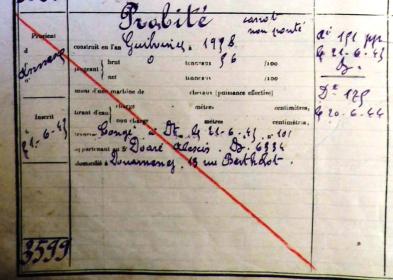 Probité canot
non ponté
Provient construit en l'an Guilvinec. 1938. Dt 151 pp.
d brut 0 tonneaux 96 /100 Le 21-6-43
jaugeant Dz.
net tonneaux /100
mû d'une machine de chevaux (puissance effective) Dt 125
charge mètres centimètres,
Inscrit tirant d'eau Le 20-6-44
non chargé mètres centimètres.
21-6-43 Congé Dz Le 21-6-43 n° 101
appartenant au S Doaré Alexis. Dz. 6334
domicilié à Douarnenez, 13 rue Berthelot.
3599